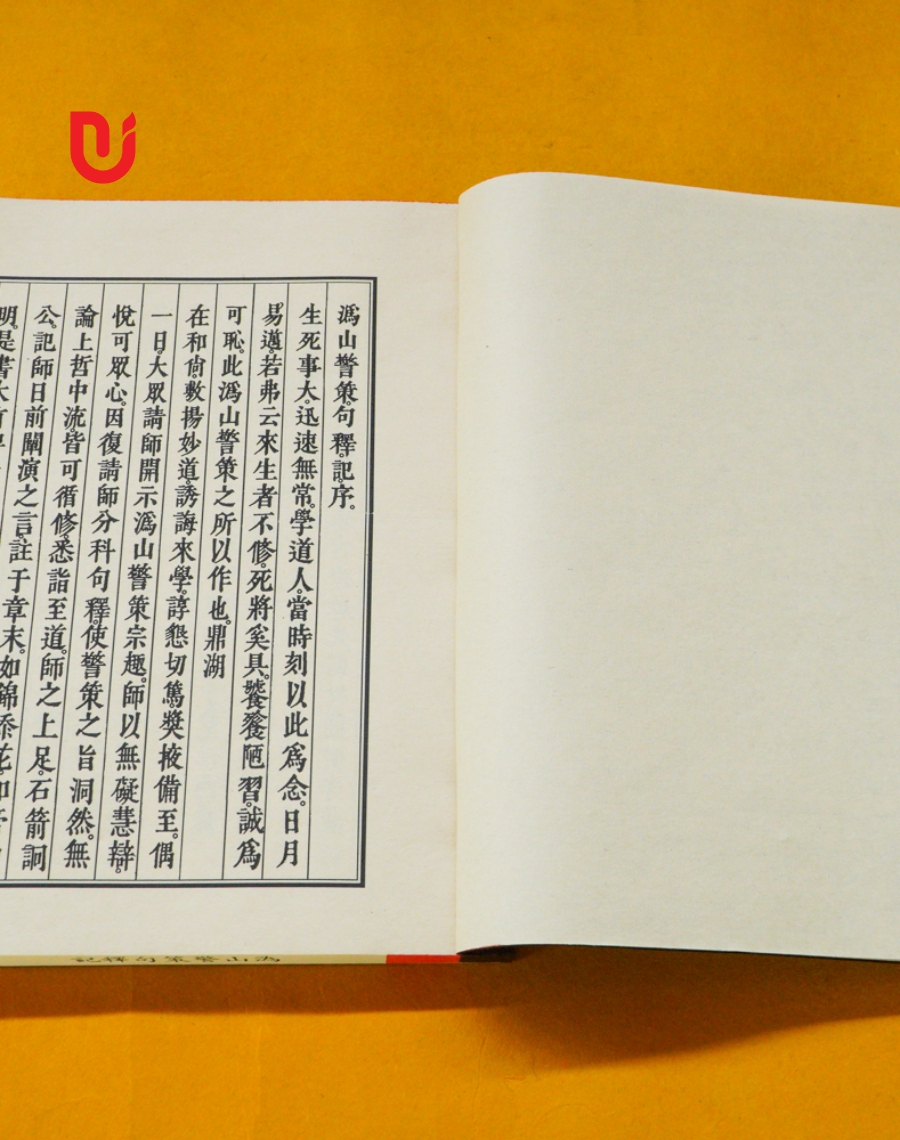 溈山警策句釋記序。
生死事大。迅速無常。學道人。當時刻以此爲念。日月
易邁。若弗云來生者不修。死將奚具。饕餮陋習。誠爲
可恥。此溈山警策之所以作也。鼎湖
在和尙。敷揚妙道。誘誨來學。諄懇切篤。獎掖備至。偶
一日。大眾請師開示溈山警策宗趣。師以無礙慧辯。
悅可眾心。因復請師分科句釋。使警策之旨洞然。無
論上哲中流。皆可循修。悉詣至道。師之上足。石箭詗
公。記師日前闡演之言。註于章末。如錦
明。是書
溈山警策句釋記